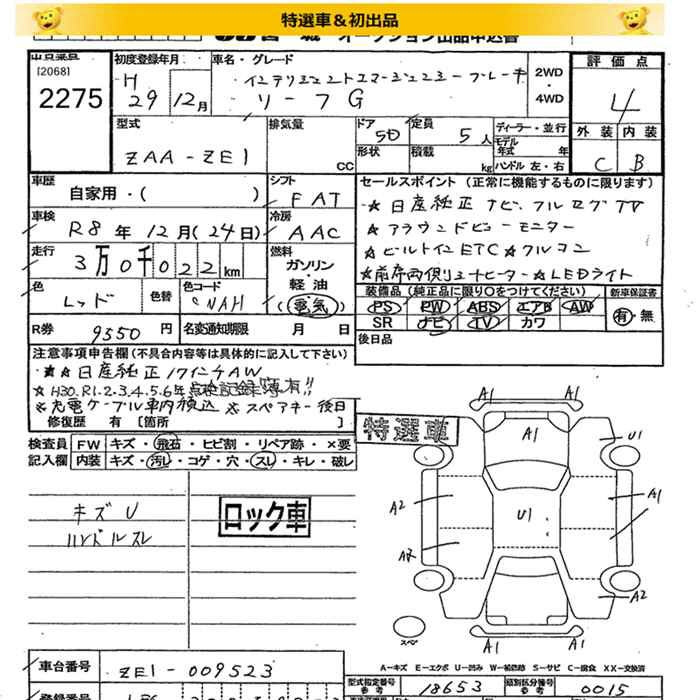 特選車＆初出品
オークション出品申込書
[2068]
2275
初度登録年月
H 29 12月
車名・グレード
インテリジェントエマージェンシーブレーキ
リーフG
2WD
・
4WD
評価点
4
外装 内装
C B
型式
ZAA-ZE1
排気量
CC
ドア
5D
定員
5人
形状
積載
kg
ディーラー・並行
モデル年式 年
ハンドル 左・右
車歴
自家用・( )
シフト
FAT
車検
R8年12月(24日)
冷房
AAC
走行
3万0千022km
燃料
ガソリン
・
軽油
(電気)
色
レッド
色替
色コード
NAH
R券
9550円
名変通知期限 月 日
セールスポイント (正常に機能するものに限ります)
★日産純正ナビ フルセグTV
★アラウンドビューモニター
★ビルトインETC ★クルコン
★前席両側シートヒーター ★LEDライト
装備品 (純正品に限り○をつけてください)
PS PW ABS エアB AW
SR ナビ TV カワ
新車保証書
有・無
後日品
注意事項申告欄(不具合内容等は具体的に記入して下さい)
★★日産純正17インチAW
★H30.R1.2.3.4.5.6年点検記録簿有!!
★充電ケーブル車内積込 ★スペアキー後日
修復歴 有 [箇所 ]
検査員
記入欄
FW キズ・飛石・ヒビ割・リペア跡・×要
内装 キズ・汚レ・コゲ・穴・スレ・キレ・破レ
キズU
ハンドルスレ
ロック車
特選車
A1 A1
A1
U1
A2
A1
U1
A2
A2
A1 A1
スペア
A-キズ E-エクボ U-凹み W-補修跡 S-サビ C-腐食 XX-交換済
車台番号
ZE1-009523
型式指定番号
参考
18653
類別区分番号
参考
0015
登録番号